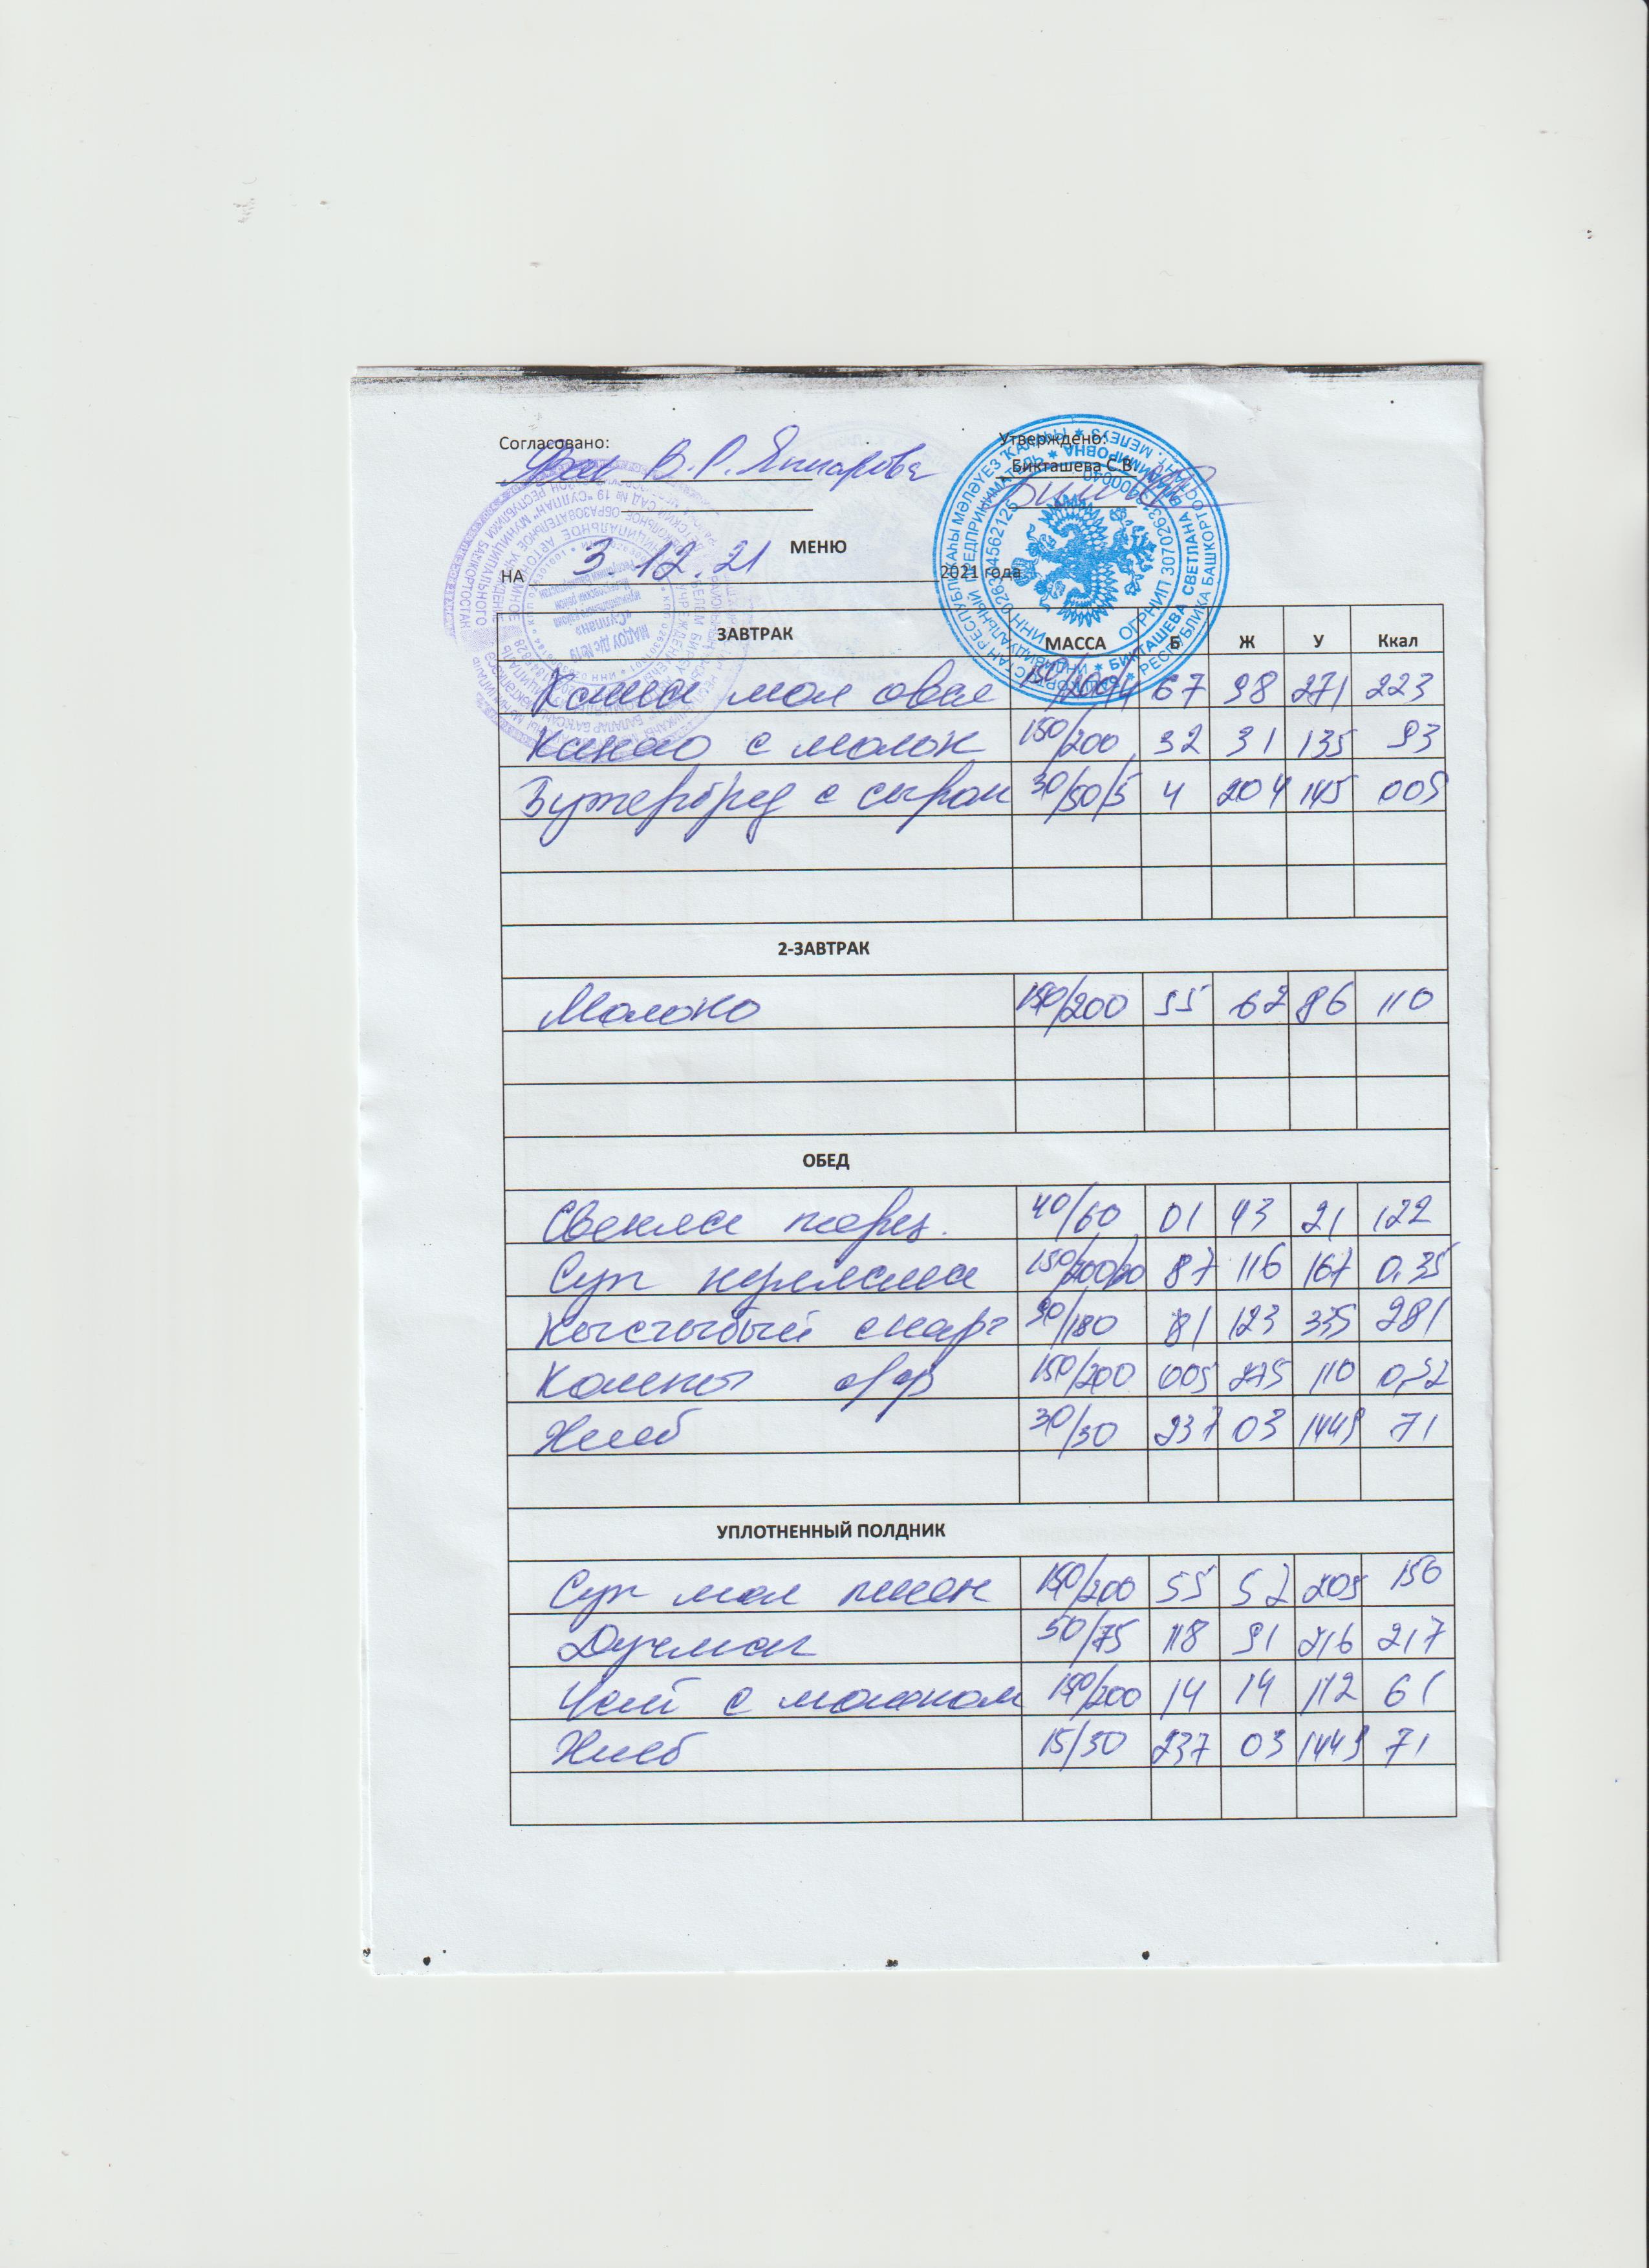 Согласовано: Утверждено:
В.Р. Бикташева С.В.
МЕНЮ
НА 3.12.21 2021 года
ЗАВТРАК МАССА Б Ж У Ккал
Каша мол овся 150/200/4 67 98 271 223
Какао с молок 150/200 32 31 135 93
Бутерброд с сыром 30/50/5 4 204 145 009
2-ЗАВТРАК
Молоко 150/200 55 62 86 110
ОБЕД
Свекла порц. 40/60 01 43 21 122
Суп кулламa 150/200/20 87 116 167 0,35
Кыстыбый с карт 90/180 81 123 335 281
Компот с/ф 150/200 005 275 110 0,32
Хлеб 30/30 237 03 1449 71
УПЛОТНЕННЫЙ ПОЛДНИК
Суп мол пшен 150/200 55 52 205 150
Дучмак 50/75 118 91 216 217
Чай с молоком 150/200 14 14 112 61
Хлеб 15/30 237 03 1449 71
БИКТАШЕВА СВЕТЛАНА
РЕСПУБЛИКА БАШКОРТОСТАН